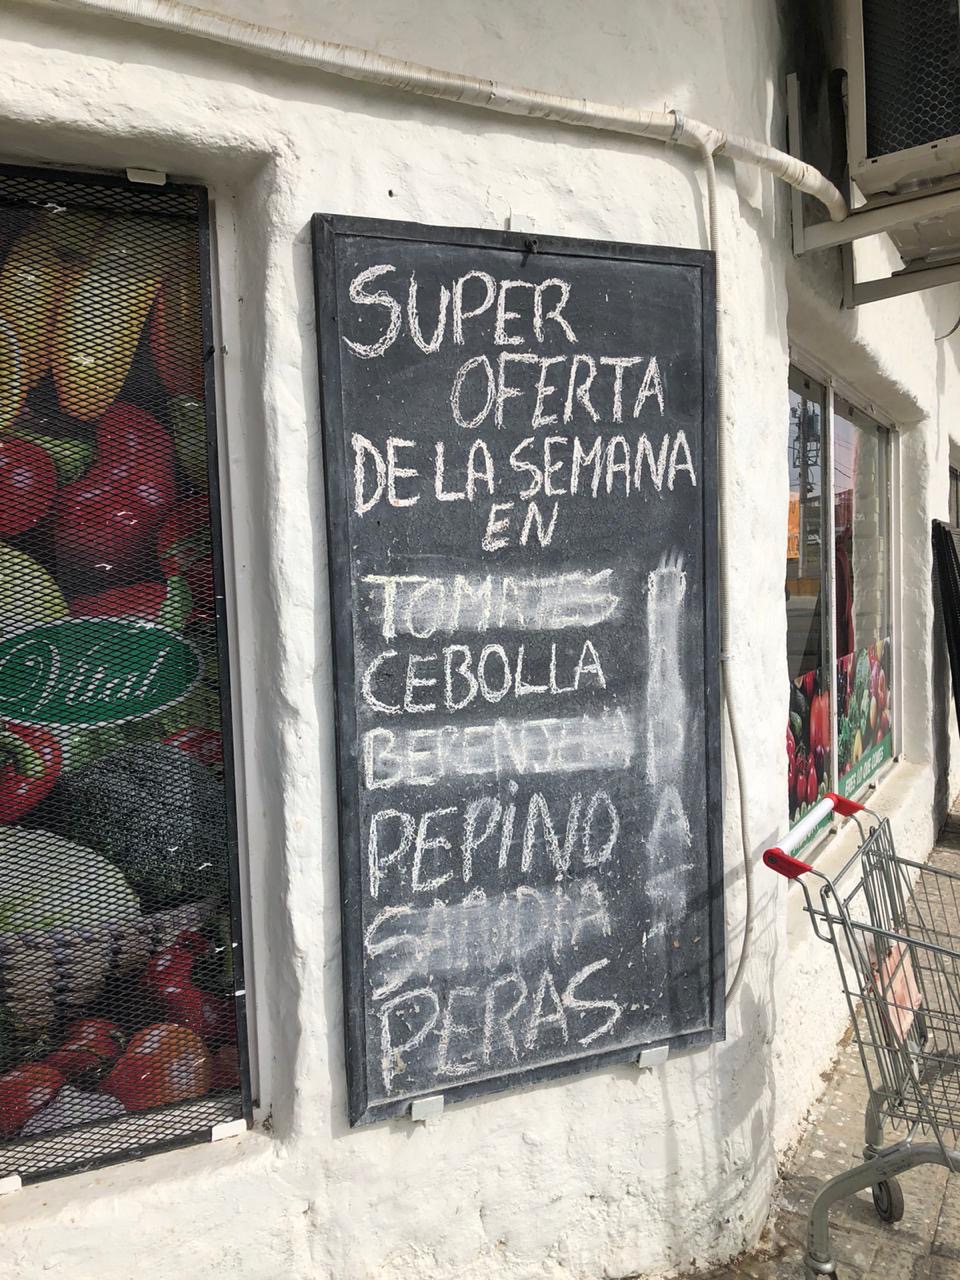 SUPER
OFERTA
DE LA SEMANA
EN
TOMATES
CEBOLLA
BERENJENA
PEPINO
SANDIA
PERAS
ERES LO QUE COMES